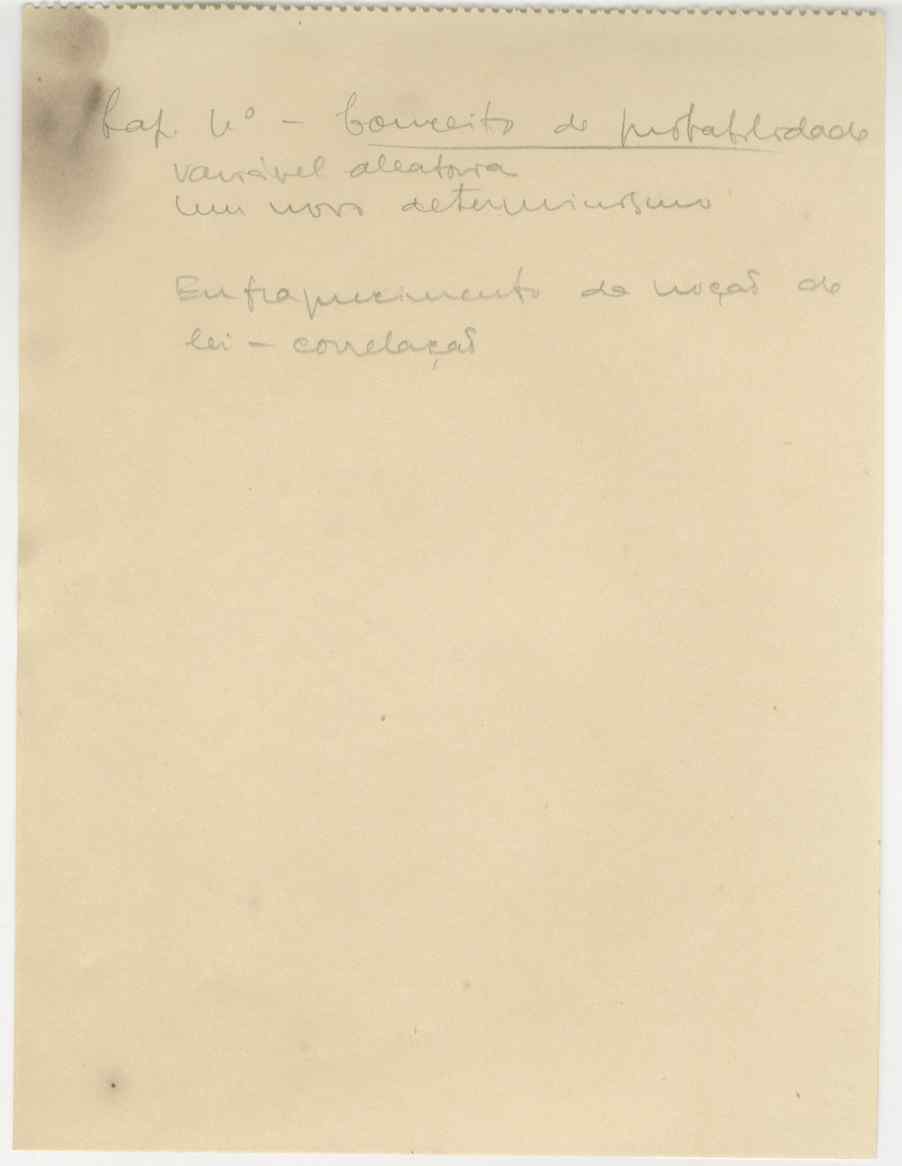 Cap. nº – Conceito de probabilidade
variável aleatoria
Um novo determinismo
Enfraquecimento da noção de
lei – correlação